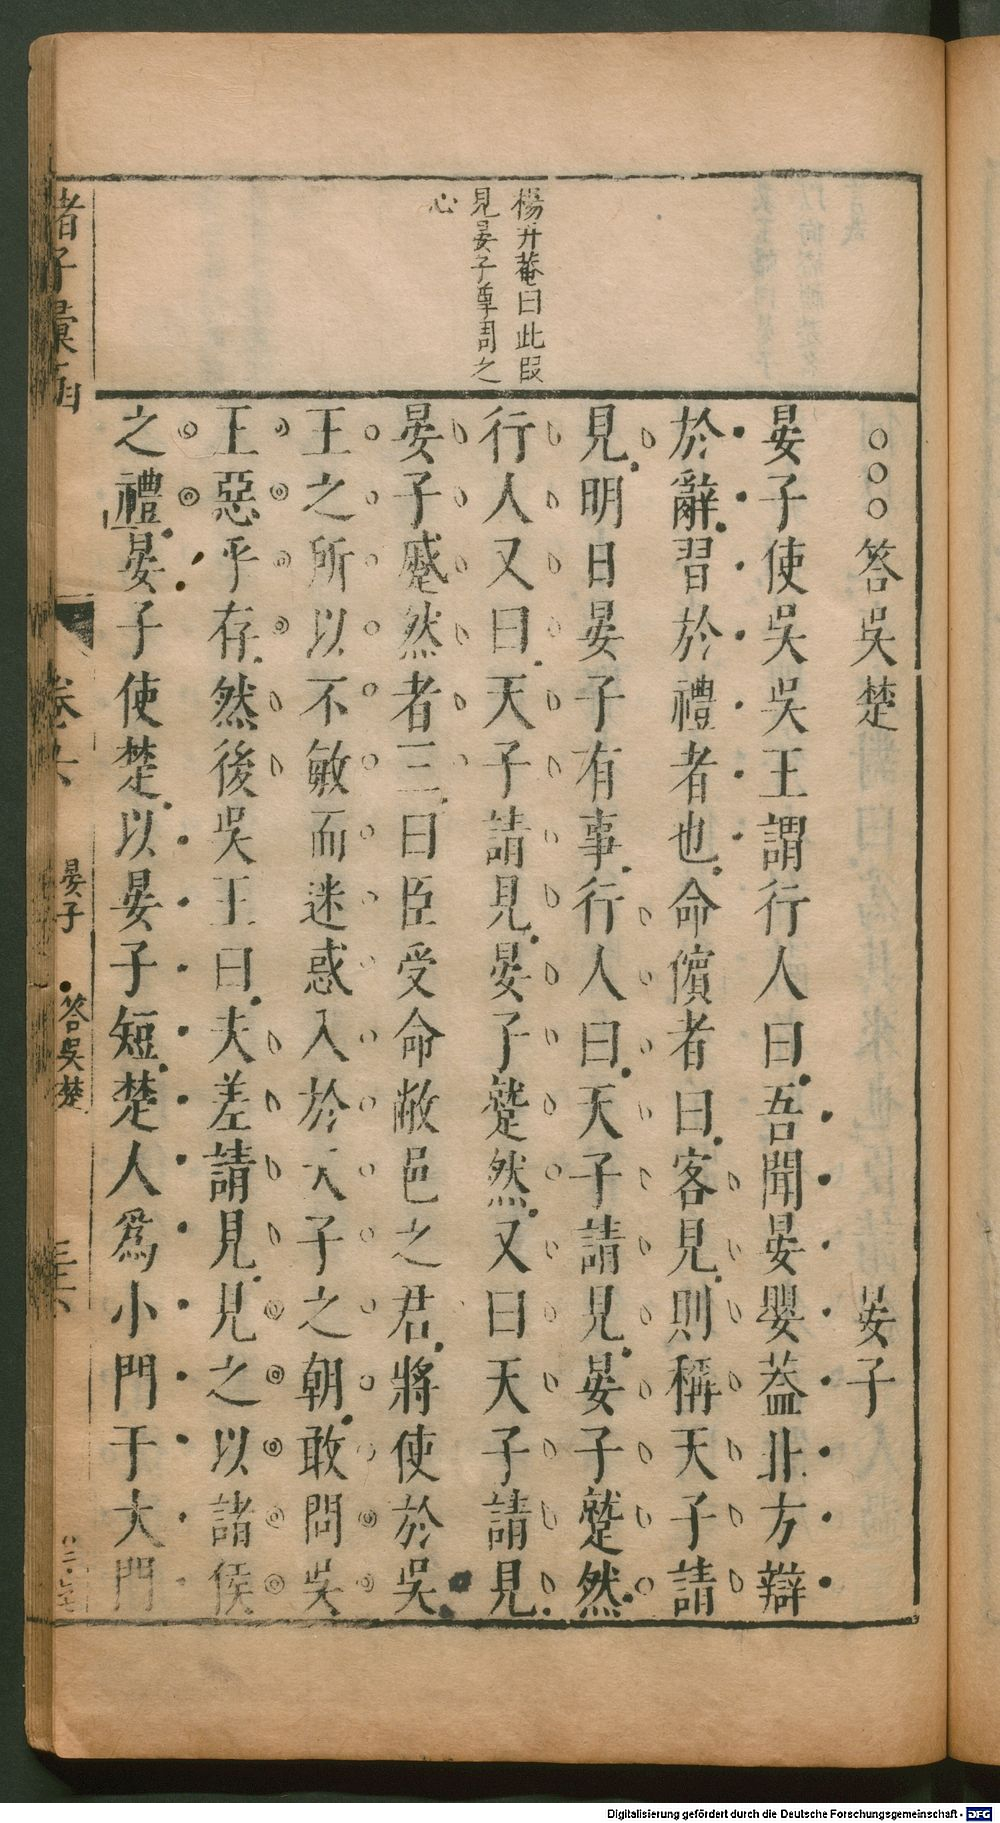 楊升菴曰此叚
見晏子尊周之
心
○○○答吳楚 晏子
晏子使吳吳王謂行人曰吾聞晏嬰葢北方辯
於辭習於禮者也命儐者曰客見則稱天子請
見明日晏子有事行人曰天子請見晏子蹵然
行人又曰天子請見晏子蹵然又曰天子請見
晏子蹙然者三曰臣受命敝邑之君將使於吳
王之所以不敏而迷惑入於天子之朝敢問吳
王惡乎存然後吳王曰夫差請見見之以諸侯
之禮晏子使楚以晏子短楚人爲小門于大門
諸子彙函
卷六
晏子
答吳楚
三六
Digitalisierung gefördert durch die Deutsche Forschungsgemeinschaft - DFG